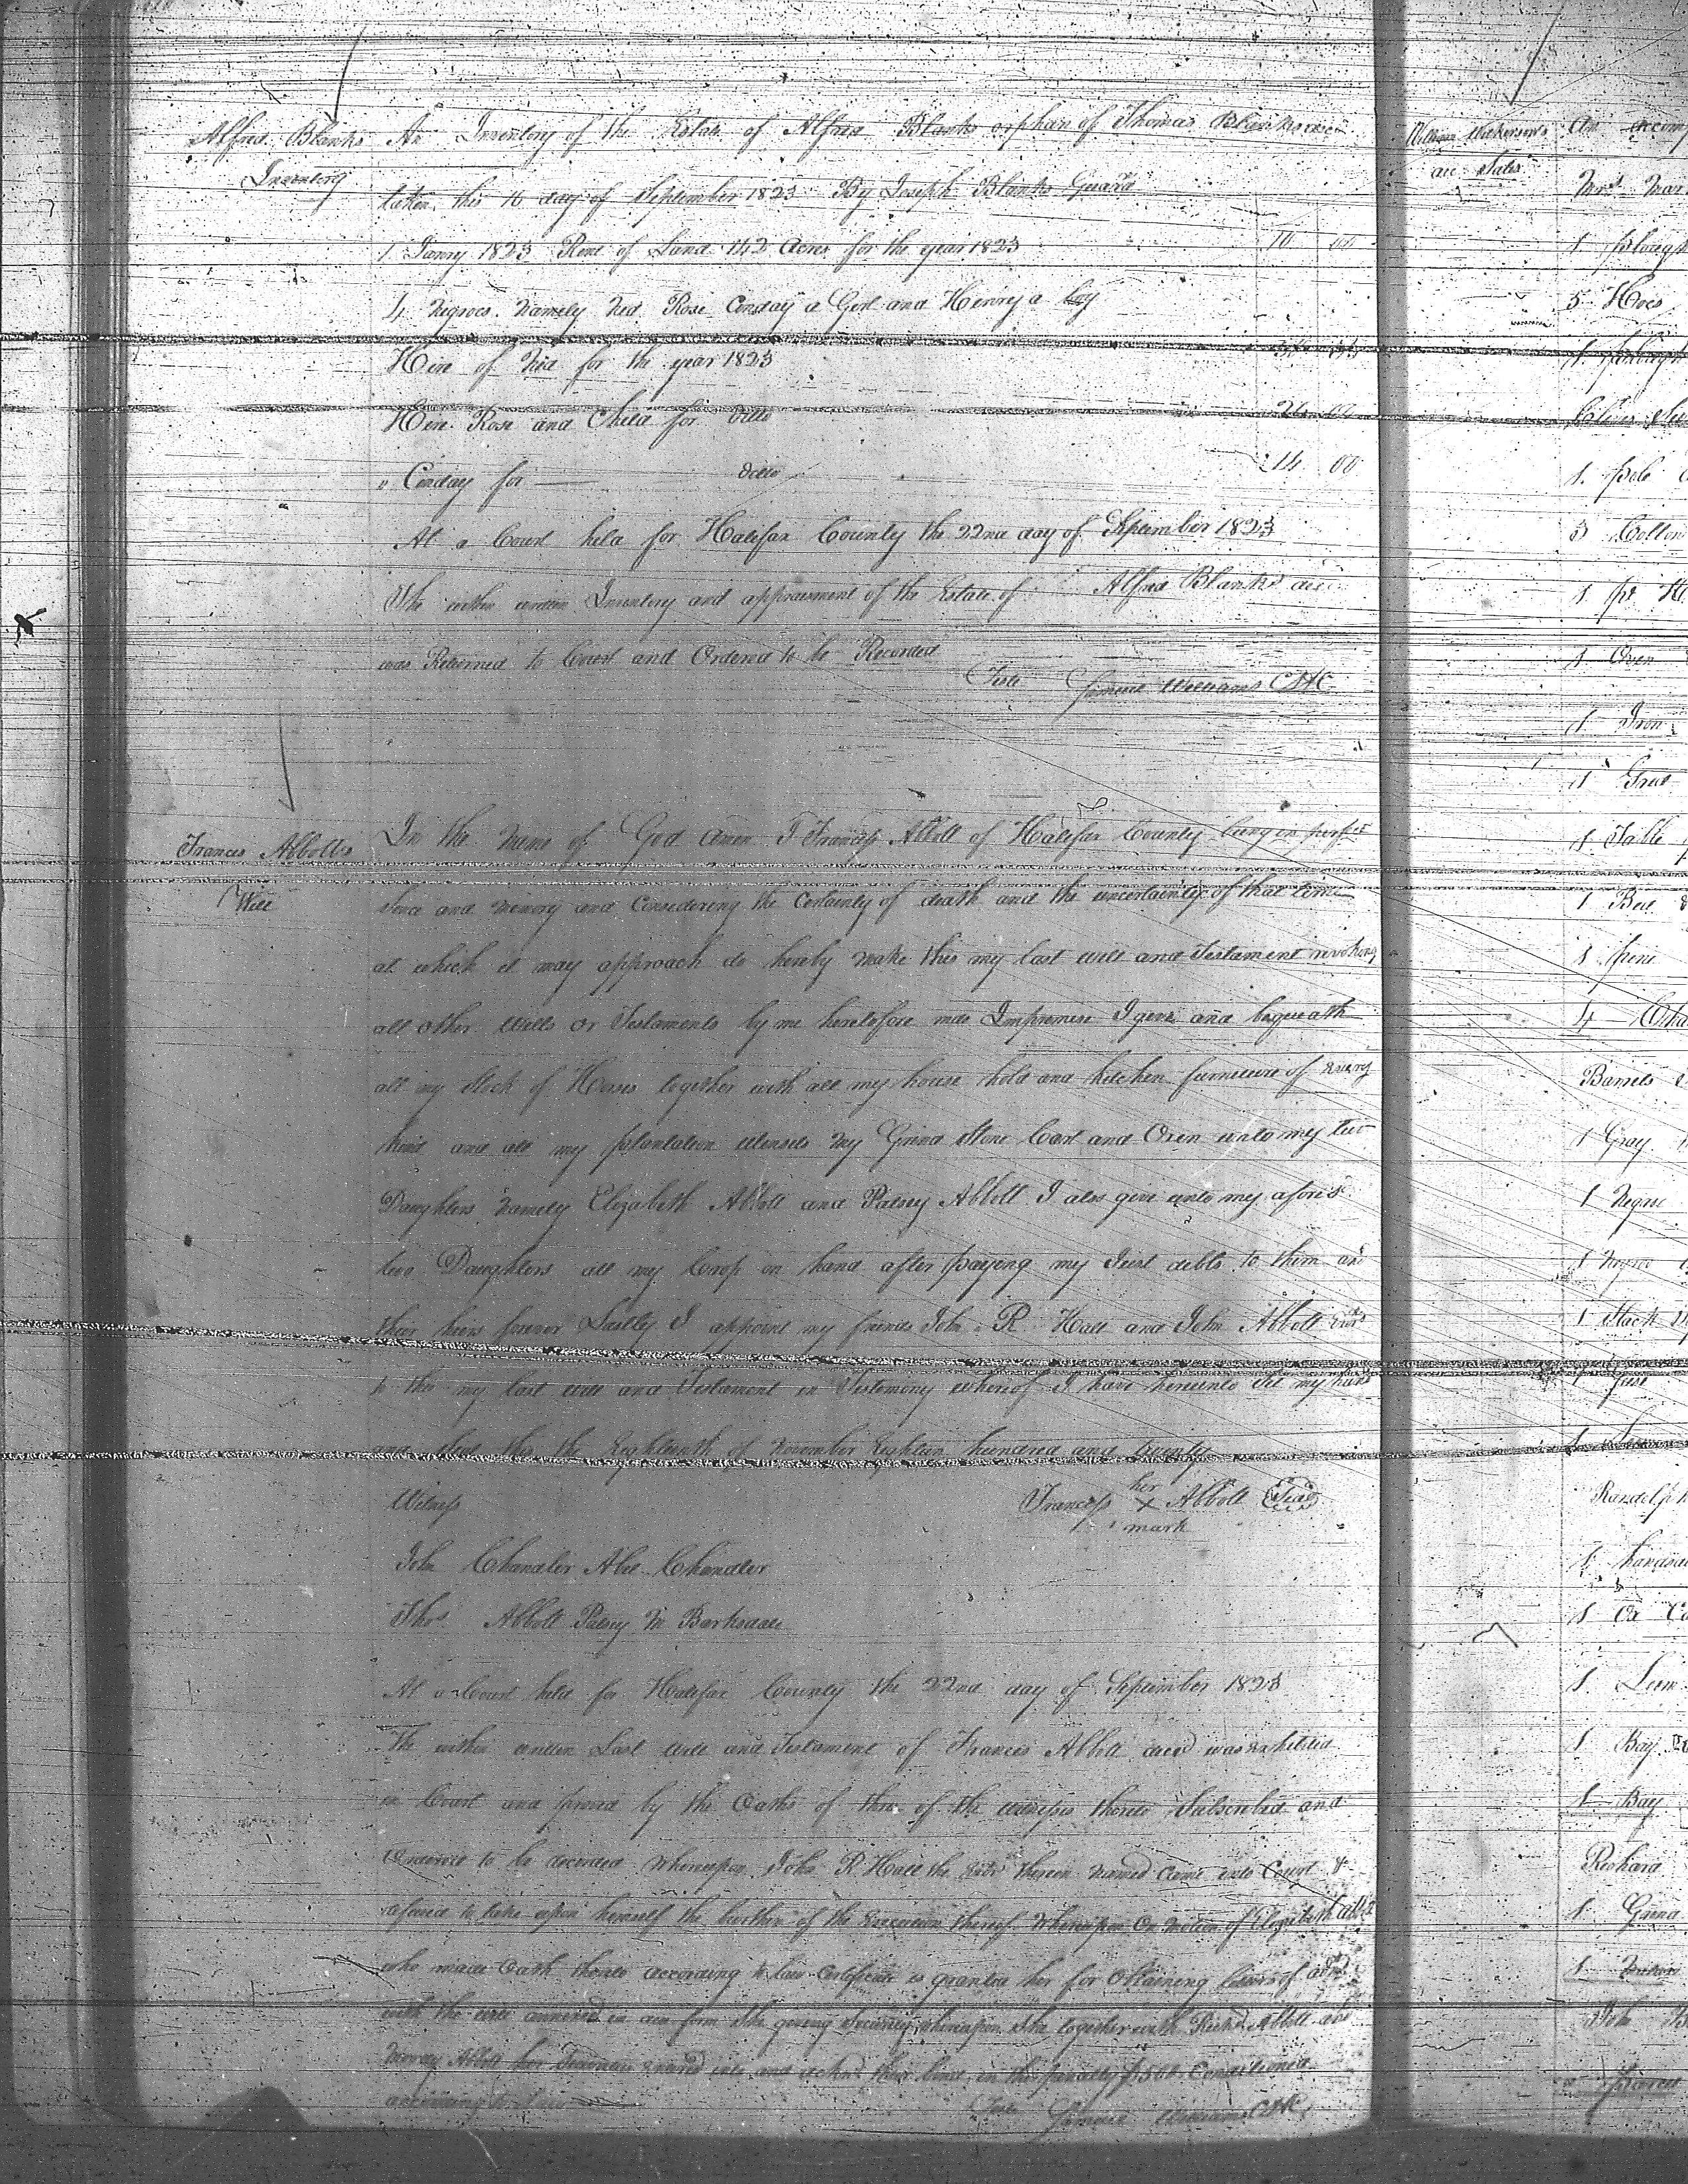 Alfred Blanks
Inventory
An Inventory of the Estate of Alfred Blanks orphan of Thomas Blanks
taken this 16 day of September 1823 By Joseph Blanks Guard
1 Janry 1823 Rent of Land 142 Acres for the year 1823 10 00
4 Negroes Namely Ned Rose Conday a Girl and Henry a boy
Hire of Ned for the year 1823
Hire Rose and Child for Ditto
" Conday for — ditto 14 00
At a Court held for Halifax County the 22nd day of September 1823
The within written Inventory and appraisment of the Estate of Alfred Blanks dec
was Returned to Court and Ordered to be Recorded
Teste Samuel Williams CHC
Frances Abbotts
Will
In the Name of God Amen I Francis Abbott of Halifax County being in perfect
sence and memory and Considering the Certainty of death and the uncertainty of that time
at which it may approach do hereby make this my last will and Testament revoking
all other wills or Testaments by me heretofore made Impremise I give and bequeath
all my Stock of Horses together with all my house hold and kitchen furniture of every
kind and all my plantation utensels my Grind Stone Cart and Oxen unto my two
Daughters Namely Elizabeth Abbott and Patsey Abbott I also give unto my afores
two Daughters all my Crop on hand after paying my Just debts to them and
their heirs forever Lastly I appoint my friends John R Hall and John Abbott Exors
to this my last will and Testament in Testimony whereof I have hereunto Set my hand
and Seal this the Eighteenth of November Eighteen hundred and twenty
Witness
her
Francess X Abbott Seal
mark
John Chandler Abel Chandler
Thos Abbott Patsey M Barksdale
At a Court held for Halifax County the 22nd day of September 1823
The within written Last Will and Testament of Frances Abbott decd was exhibited
in Court and proved by the Oaths of three of the witnesses thereto Subscribed and
Ordered to be recorded Whereupon John R Hall the Exor therein Named Came into Court &
refused to take upon himself the burthen of the Execution thereof Whereupon On motion of Elizabeth Abbott
who made Oath thereto according to law Certificate is granted her for Obtaining letters of adm
with the will annexed in due form She giving Security whereupon She together with Richd Abbott and
Abbott her Securities entered into and ackd their bond in the penalty of $500 Conditioned
according to Law
Teste Samuel Williams CHC
William Wilkerson's
acc Sales
An accomp
Mrs Mar
1 plough
5 Hoes
1
1
3 Cotton
1 pr
1 Oven
1 Iron
1
1 Table
1 Bed &
1
4
Barrels
1 Gray
1 Negroe
1 Negroe
1 Stack
1
Randolph
1 handsaw
1 Ox Ca
1
1 Bay
1 Bay
Richard
1 Grind
1
John